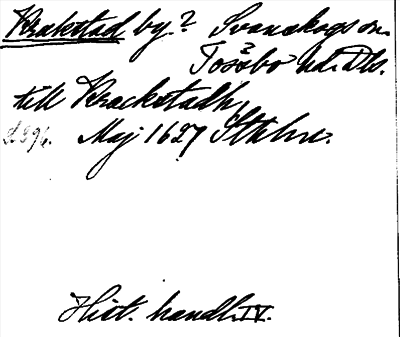 Krakstad by? Svanskogs sn.
Tössbo hd. Dls.
till Krackstadh,
Maj 1627 Sthlm.
Hist. handl. IV.